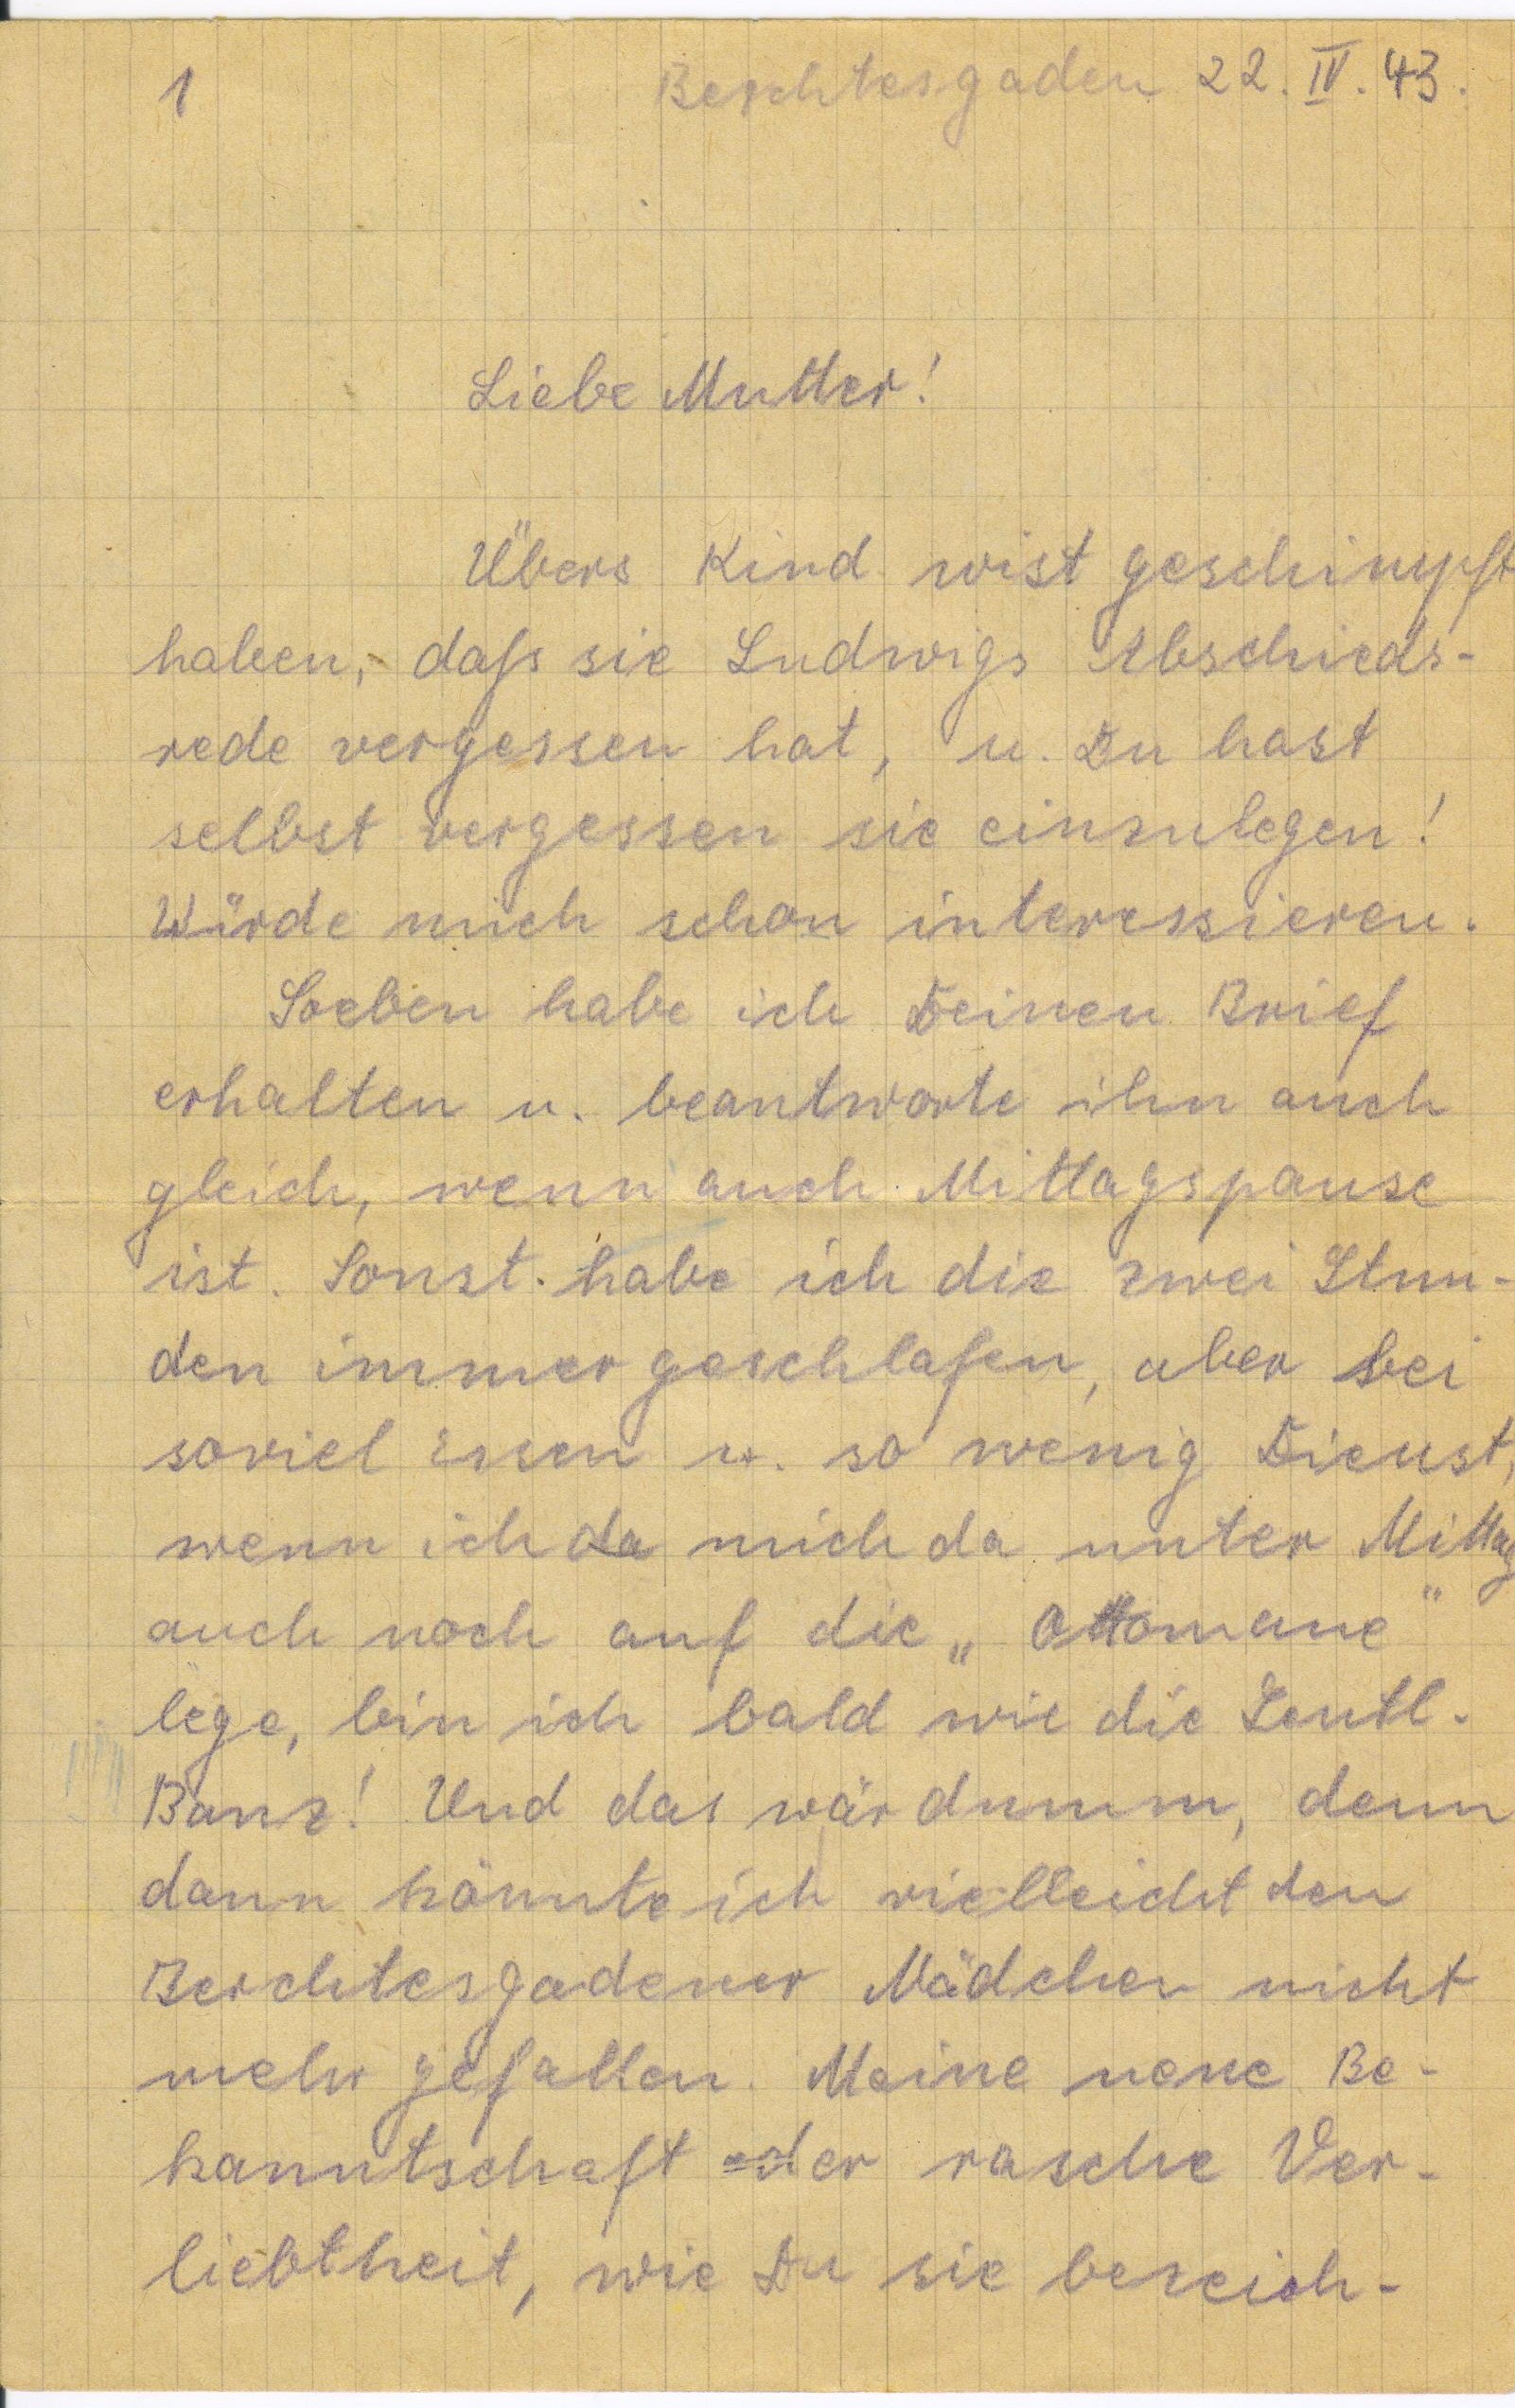 1 Berchtesgaden 22. IV. 43.
Liebe Mutter!
Übers Kind wist geschimpft
haben, daß sie Ludwigs Abschieds-
rede vergessen hat, u. Du hast
selbst vergessen sie einzulegen!
Würde mich schon interessieren.
Soeben habe ich Deinen Brief
erhalten u. beantworte ihn auch
gleich, wenn auch Mittagspause
ist. Sonst habe ich die zwei Stun-
den immer geschlafen, aber bei
soviel Essen u. so wenig Dienst,
wenn ich da mich da unter Mittag
auch noch auf die „Ottomane"
lege, bin ich bald wie die
Banz! Und das wär dumm, denn
dann könnte ich vielleicht den
Berchtesgadener Mädchen nicht
mehr gefallen. Meine neue Be-
kanntschaft oder rasche Ver-
liebtheit, wie Du sie bezeich-